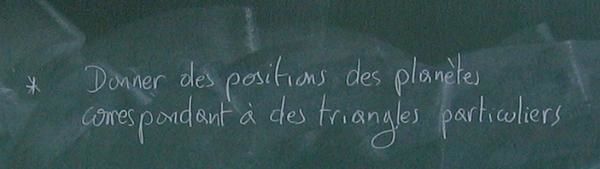 * Donner des positions des planètes
correspondant à des triangles particuliers